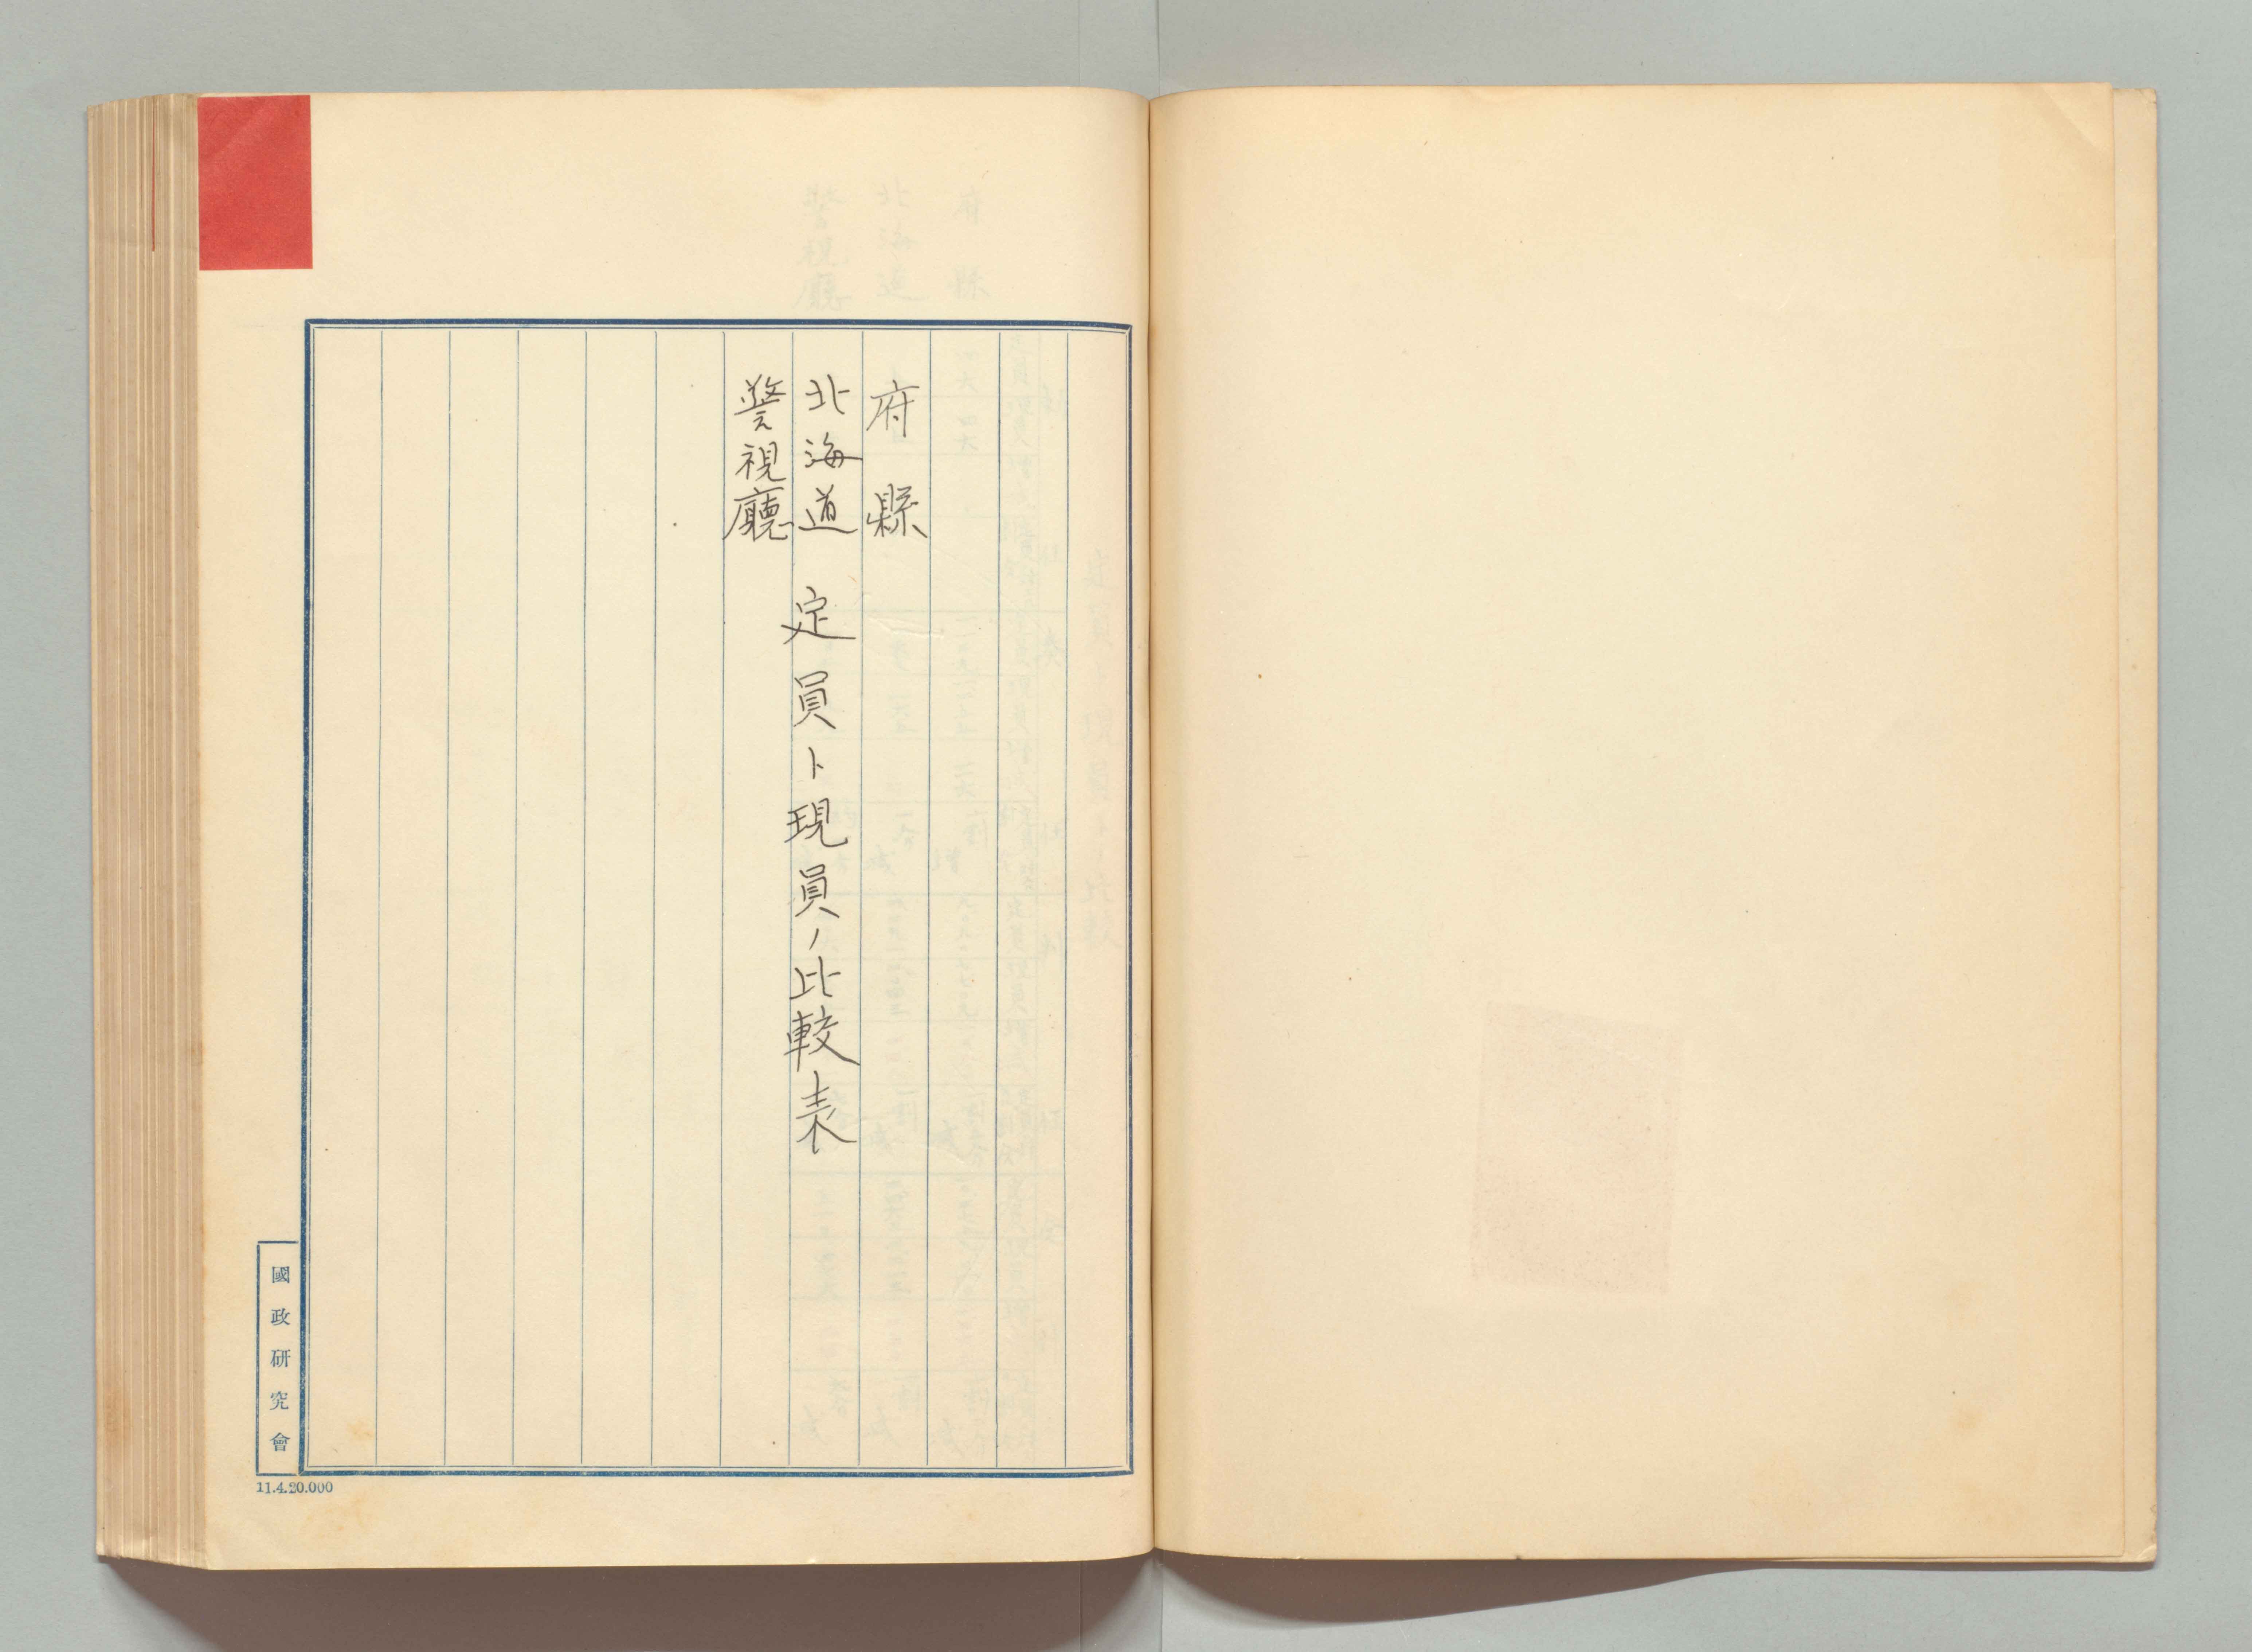 府縣
北海道 定員ト現員ノ比較表
警視廳
國政研究會
11.4.20.000